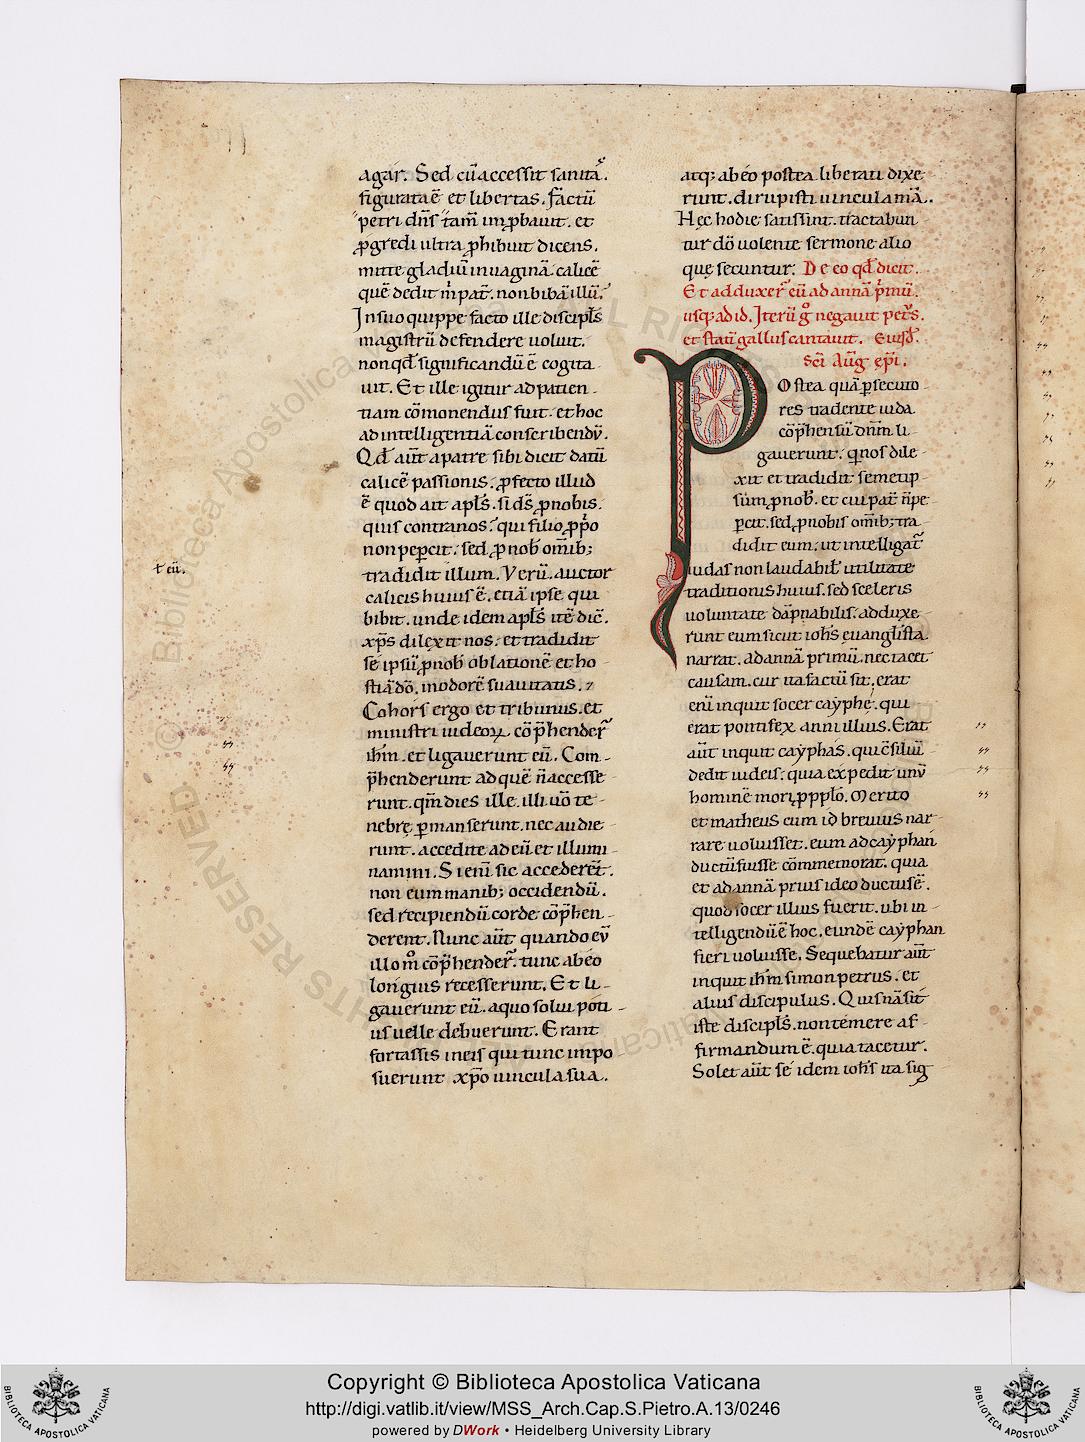 agar. Sed cū accessit sanitā.
figurata ē et libertas. factū
petri dn̄s tam̄ improbauit. et
ꝓgredi ultra ꝓhibuit dicens.
mitte gladiū in uaginā. calicē
quē dedit m̓ pat̄. non bibā illū.
In suo quippe facto ille discipl̄s
magistrū defendere uoluit.
non qđ significandū ē cogita
uit. Et ille igitur ad patien
tiam cōmonendus fuit. et hoc
ad intelligentiā conscribendū.
Qđ aut̄ a patre sibi dicit datū
calicē passionis. ꝓfecto illud
ē quod ait apl̄s. si ds̄ ꝓ nobis.
quis contra nos. qui filio ꝓp̓o
non peꝑcit. sed ꝓ nob̄ omīb;
tradidit illum. Verū. auctor
calicis huius ē. etiā ipse qui
bibit. unde idem apl̄s itē dic̄.
xp̄s dilexit nos. et tradidit
se ipsū ꝓ nob̄ oblationē et ho
stiā dō. in odorē suauitatis.
Cohors ergo et tribunus. et
ministri iudeoꝝ. cōp̄hender̄
ih̄m. et ligauerunt eū. Com
p̄henderunt ad quē n̄ accesse
runt. qm̄ dies ille. illi uō te
nebrę ꝑmanserunt. nec audie
runt. accedite ad eū et illumi
namini. Si eni sic accederēt.
non eum manib; occidendū.
sed recipiendū corde cōp̄hen
derent. Nunc aut̄ quando eū
illo m̊ cōp̄hender̄. tunc ab eo
longius recesserunt. Et li
gauerunt eū. a quo solui poti
us uelle debuerunt. Erant
fortassis in eis qui tunc impo
suerunt xp̄o uincula sua.
atq; ab eo postea liberati dixe
runt. dirupisti uincula mā.
Hęc hodie satis sint. tractabun
tur dō uolente sermone alio
quę secuntur. De eo qđ dicit.
Et adduxer̄ eū ad annā p̓mū.
usq; ad id. Iterū g̊ negauit petr̄s.
et statī gallus cantauit. Eiusđ.
Sc̄i Auḡ ep̄i.
Postea quā ꝑsecuto
res tradente iuda
cōp̄hensū dn̄m li
gauerunt. qui nos dile
xit et tradidit semetip
sūm ꝓ nob̄. et cui pat̄ n̄ pe
ꝑcit. sed ꝓ nobis omīb; tra
didit eum. ut intelligat̄
iudas non laudabil̄ utilitate
traditionis huius. sed sceleris
uoluntate dāpnabilis. adduxe
runt eum sicut ioh̄s euanglista
narrat. ad annā primū. nec tacet
causam. cur ita factū sit. erat
eni inquit socer cayphę. qui
erat pontifex anni illius. Erat
aut̄ inquit cayphas. qui c̄siliū
dedit iudeis. quia expedit unū
hominē mori ꝓ ppl̄o. Merito
et matheus cum id breuius nar
rare uoluisset. eum ad cayphan
ductū fuisse cōmemorat. quia
et ad annā prius ideo ductus ē.
quod socer illius fuerit. ubi in
telligendū ē hoc. eundē cayphan
fieri uoluisse. Sequebatur aut̄
inquit ih̄m simon petrus. et
alius discipulus. Quisnā sit
iste discipl̄s. non temere af
firmandum ē. quia tacetur.
Solet aut̄ se idem ioh̄s ita sig
ł eū.
Copyright © Biblioteca Apostolica Vaticana
http://digi.vatlib.it/view/MSS_Arch.Cap.S.Pietro.A.13/0246
powered by DWork • Heidelberg University Library
BIBLIOTECA APOSTOLICA VATICANA
BIBLIOTECA APOSTOLICA VATICANA